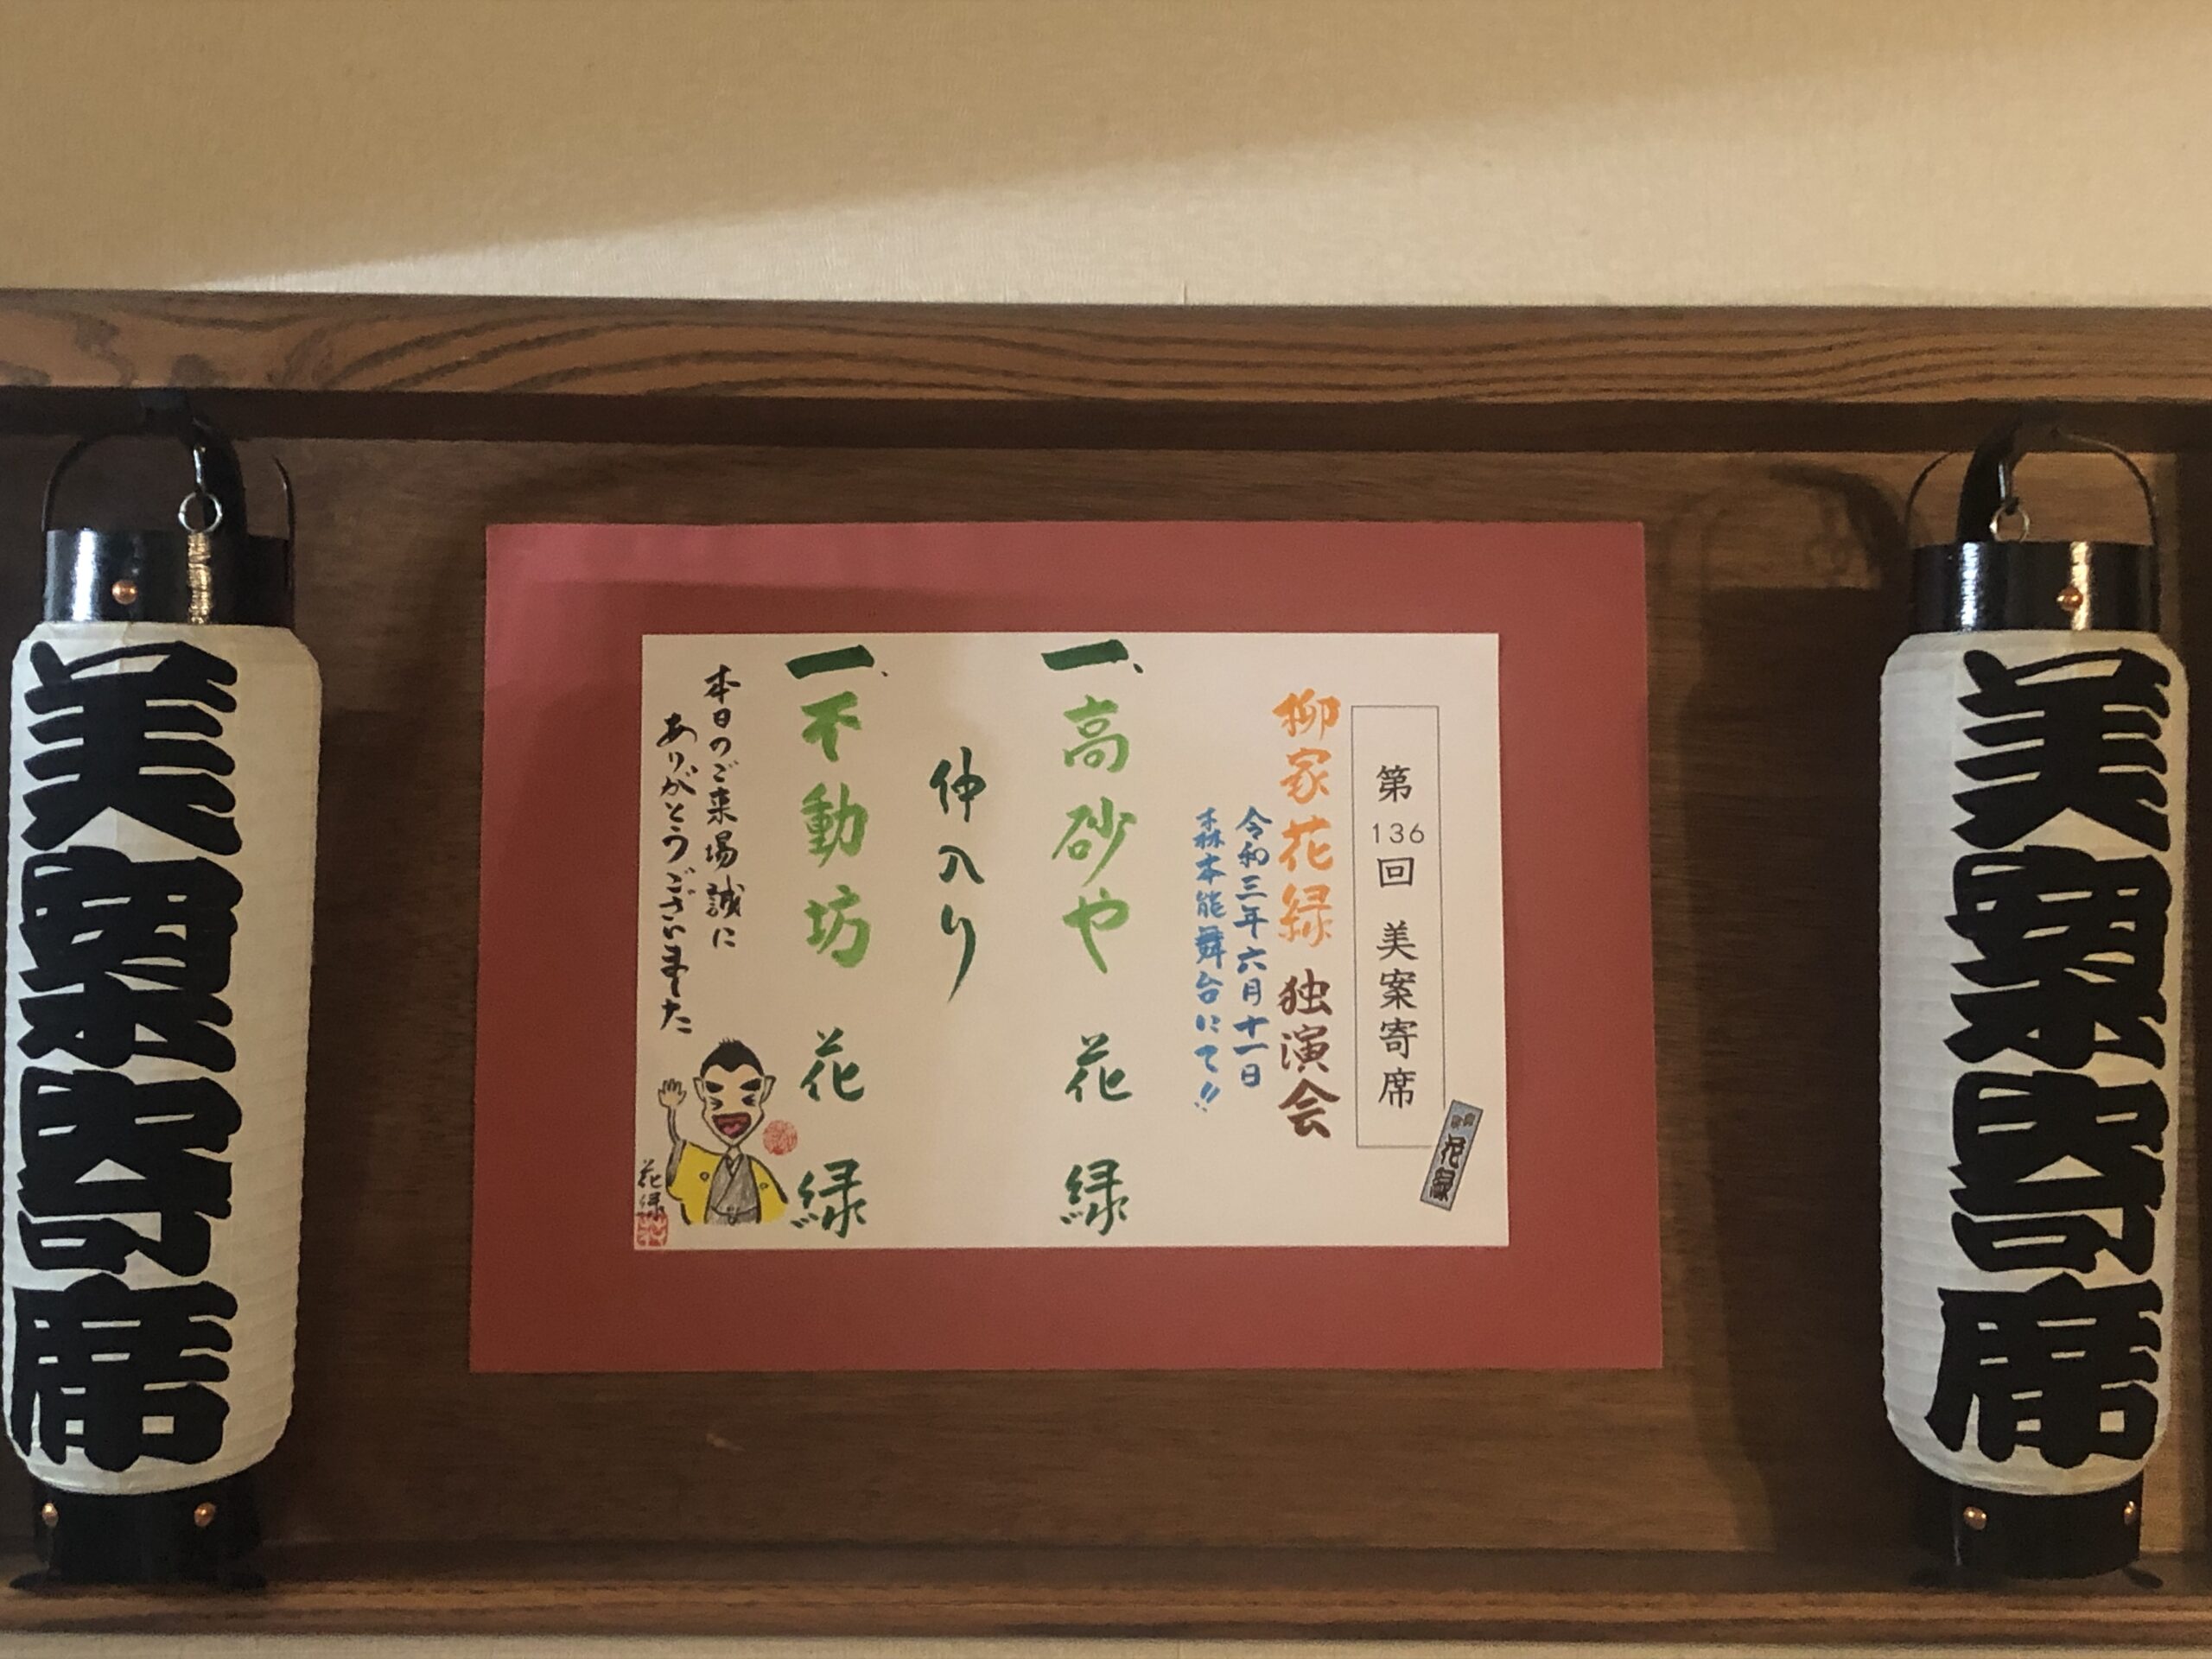 美案寄席
第136回 美案寄席
柳家花緑 独演会
令和三年六月十一日
森本能舞台にて!!
一、高砂や 花緑
仲入り
一、不動坊 花緑
本日のご来場誠に
ありがとうございました
花緑
花緑
美案寄席